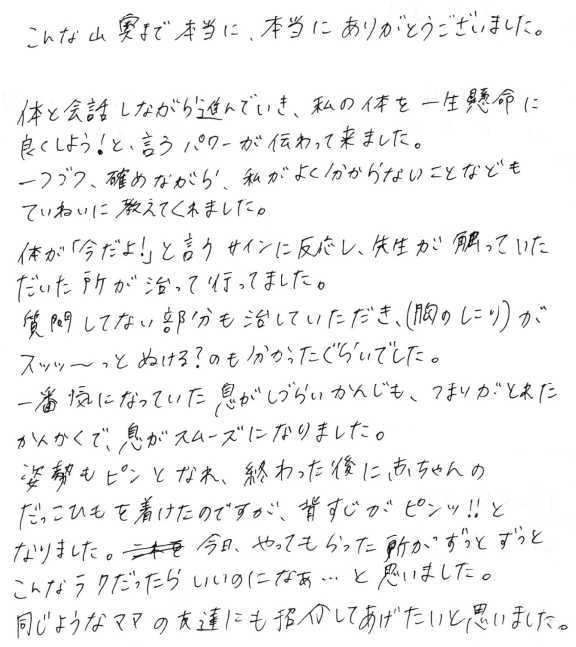 こんな山奥まで本当に、本当にありがとうございました。
体と会話しながら進んでいき、私の体を一生懸命に
良くしよう!と、言うパワーが伝わって来ました。
一つづつ、確めながら、私がよく分からないことなども
ていねいに教えてくれました。
体が「今だよ!」と言うサインに反応し、先生が触っていた
だいた所が治って行ってました。
質問してない部分も治していただき、(胸のしこり)が
スッッ〜っとぬける?のも分かったぐらいでした。
一番気になっていた息がしづらいかんじも、つまりがとれた
かんかくで、息がスムーズになりました。
姿勢もピンとなれ、終わった後に赤ちゃんの
だっこひもを着けたのですが、背すじがピンッ!!と
なりました。今日、やってもらった所がずっとずっと
こんなラクだったらいいのになぁ…と思いました。
同じようなママの友達にも招介してあげたいと思いました。